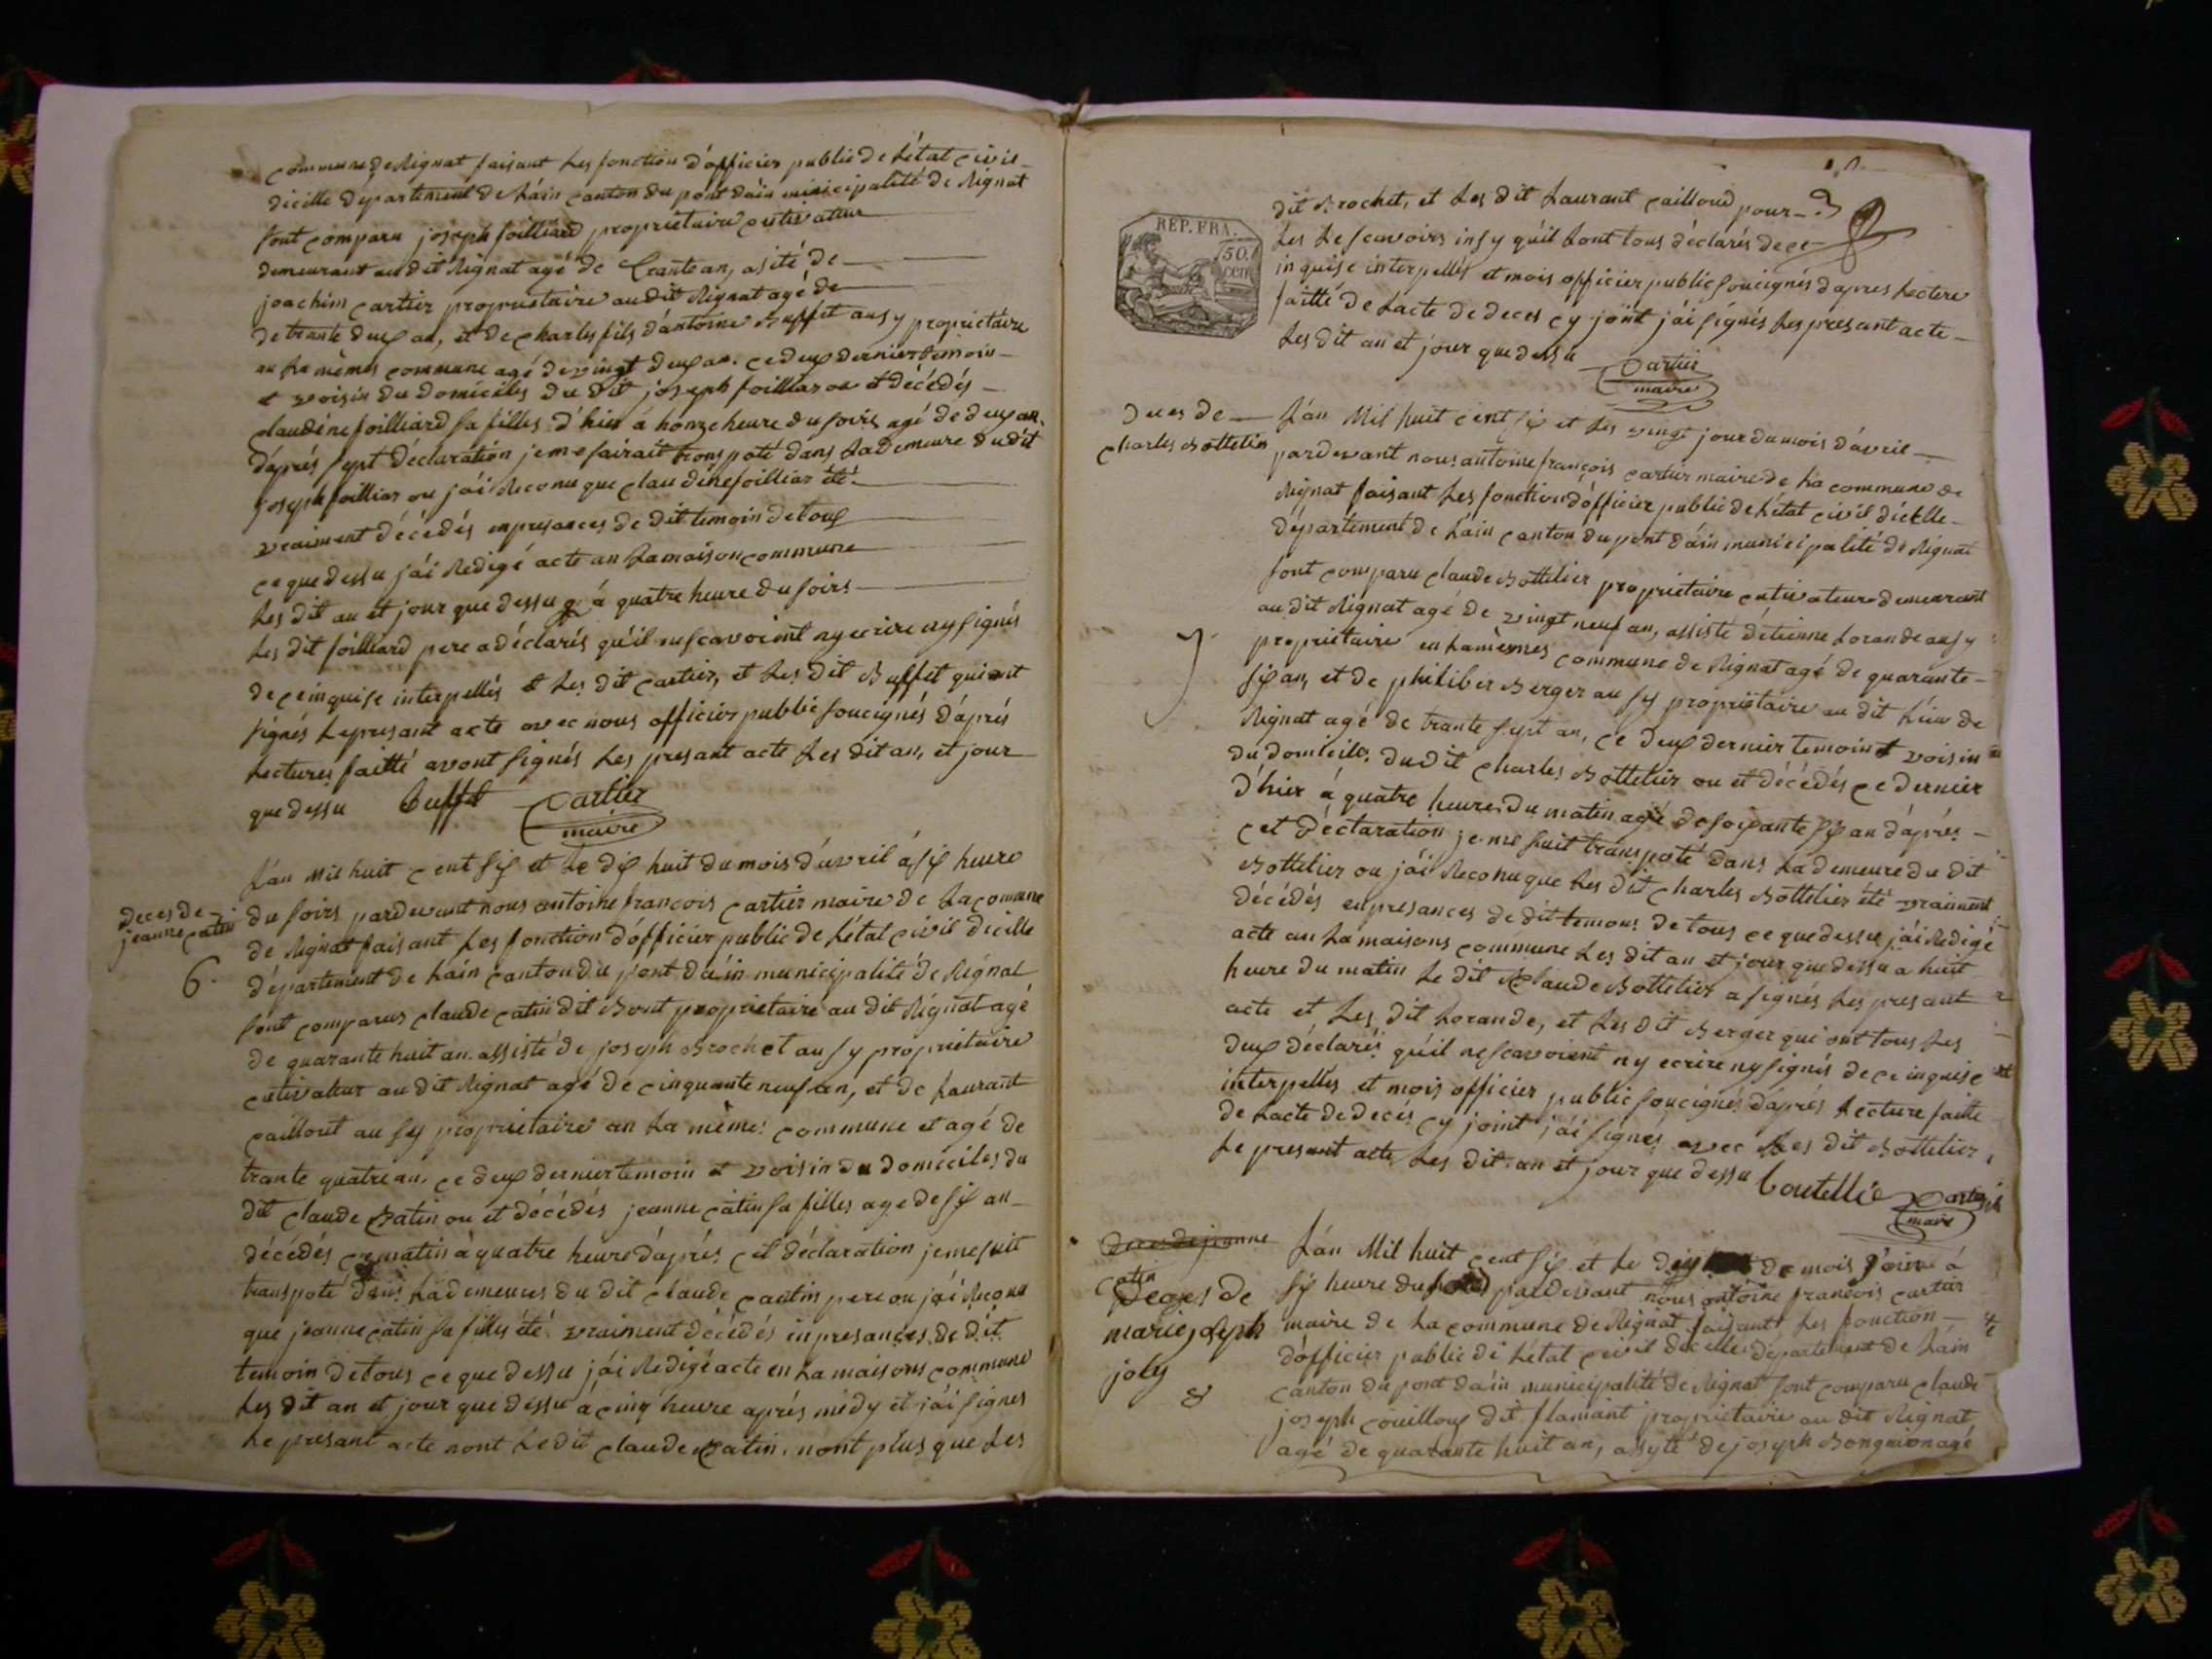 commune de Rignat faisant les fonction d'officier public de l'état civil
dicelle departement de l'ain canton du pont d'ain municipalité de Rignat
sont comparu joseph foilliard propriétaire cutivateur
demeurant audit Rignat agé de trante an, asité de
joachim cartier propriétaire audit Rignat agé de
de trante deux an, et de charles fils d'antoine Buffet ausy propriétaire
en la mêmes commune agé de vingt deux an. ce deux dernier temoin
et voisin du domiciles du dit joseph foilliar ou et décédés
claudine foilliard sa filles d'hier à honze heure du soirs agé de deux an.
d'aprés sept déclaration je me sairait transpoté dans la demeure dudit
joseph foilliar ou j'ai Reconu que claudine foilliar été
vraiment décédés en presances de dit temoin de tous
ce que dessu j'ai Redigé acte an la maison commune
les dit an et jour que dessu à quatre heure du soirs
les dit foilliard pere a déclarés qu'il ne scavoient ny ecrire ny signés
de ce inquise interpellés et les dit cartier, et les dit Buffet qui ont
signés le presant acte avec nous officier public soucignés d'aprés
lectures faitté avont signés les presant acte les dit an, et jour
que dessu Buffet Cartier
maire
deces de
jeanne catin
6.
L'an Mil huit cent six et le dix huit du mois d'avril à six heure
du soirs pardevant nous antoine francois cartier maire de la comune
de Rignat faisant les fonction d'officier public de l'état civil dicelle
département de l'ain canton du pont d'ain municipalité de Rignat
sont comparus claude catin dit Bont propriétaire au dit Rignat agé
de quarante huit an. assisté de joseph Brochet ausy propriétaire
cutivateur au dit Rignat agé de cinquante neuf an, et de Laurant
caillout ausy propriétaire an la même commune et agé de
trante quatre an, ce deux dernier temoin et voisin du domiciles du
dit claude catin ou et décédés jeanne catin sa filles age de six an
décédés ce matin à quatre heure d'aprés cet déclaration je me suit
transpoté dans la demeures du dit claude cautin pere ou j'ai Reconu
que jeanne catin sa filles été vraiment décédés in presances de dit
temoin de tous ce que dessu j'ai Redigé acte en la maisons commune
les dit an et jour que dessu à cinq heure aprés midy et j'ai signés
le presant acte nont le dit claude catin, nont plus que les
REP. FRA.
50.
cen
dit Brochet, et les dit Laurant cailloud pour
les le scavoirs insy qu'il sont tous déclarés de ce
inquise interpellés et mois officier public soucignés d'apres lecture
faitté de l'acte de deces cy joint j'ai signés les presant acte
les dit an et jour que dessu Cartier
maire
deces de
charles Bottelier
7.
L'an Mil huit cent six et les vingt jour du mois d'avril
pardevant nous antoine françois cartier maire de la commune de
Rignat faisant les fonction d'officier public de l'état civil dicelle
département de l'ain canton du pont d'ain municipalité de Rignat
sont comparu claude Bottelier propriétaire cutivateur demeurant
au dit Rignat agé de vingt neuf an, assisté d'étienne Lorande ausy
propriétaire en la mêmes commune de Rignat agé de quarante
six an, et de philiber Berger ausy propriétaire au dit lieu de
Rignat agé de trante sept an, ce deux dernier temoin et voisin
du domicile, du dit charles Bottelier ou et décédés ce dernier
d'hier à quatre heure du matin agé de soixante six an d'aprés
cet déctaration je me suit transpoté dans la demeure du dit
Bottelier ou j'ai Reconu que les dit charles Bottelier été vraiment
décédés en presances de dit temoins de tous ce que dessu j'ai Redigé
acte an la maisons commune les dit an et jour que dessu a huit
heure du matin le dit claude Bottelier a signés les presant
acte et les dit Lorande, et les dit Berger qui ont tous les
deux déclarés qu'il ne scavoient ny ecrire ny signés de ce inquise
interpellés et mois officier public soucignés d'aprés lecture faitte
de l'acte de decés cy joint j'ai signés avec les dit Bottelier,
le presant acte les dit an et jour que dessu Boutellie Cartier
maire
deces de jeanne
catin
Deces de
marie joseph
joly
8
L'an Mil huit cent six et le de mois à
sy heure du pardevant nous antoine francois cartier
maire de la commune de Rignat faisant les fonction
d'officier public de l'état civil dicelle departement de l'ain
canton du pont d'ain municipalité de Rignat sont comparu claude
joseph couilloux dit flamant propriétaire au dit Rignat
agé de quarante huit an, assyté de joseph Bonguion agé